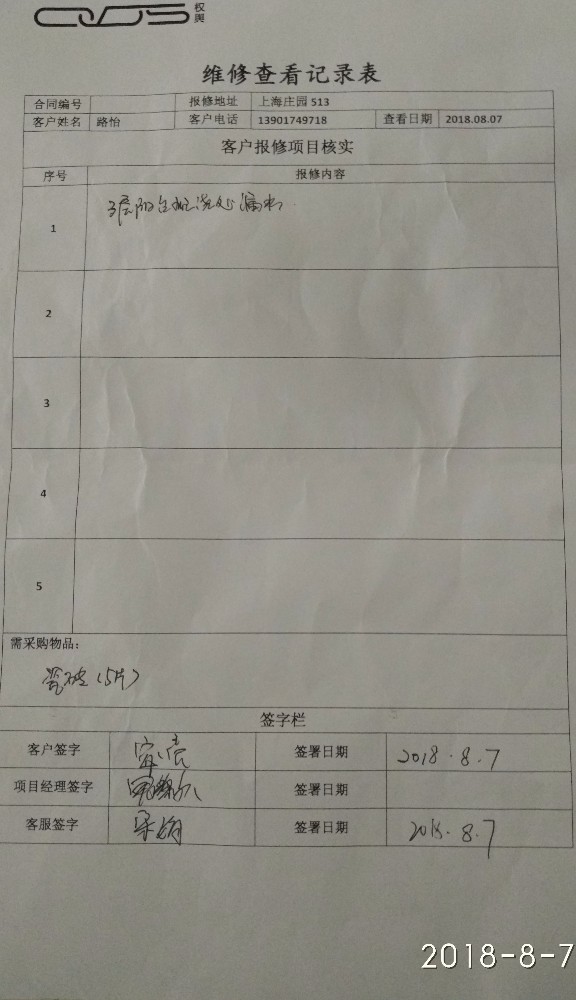 权舆
维修查看记录表
合同编号 报修地址 上海庄园 513
客户姓名 路怡 客户电话 13901749718 查看日期 2018.08.07
客户报修项目核实
序号 报修内容
1 漏水
2
3
4
5
需采购物品：
瓷砖（5片）
签字栏
客户签字 签署日期 2018.8.7
项目经理签字 签署日期
客服签字 签署日期 2018.8.7
2018-8-7